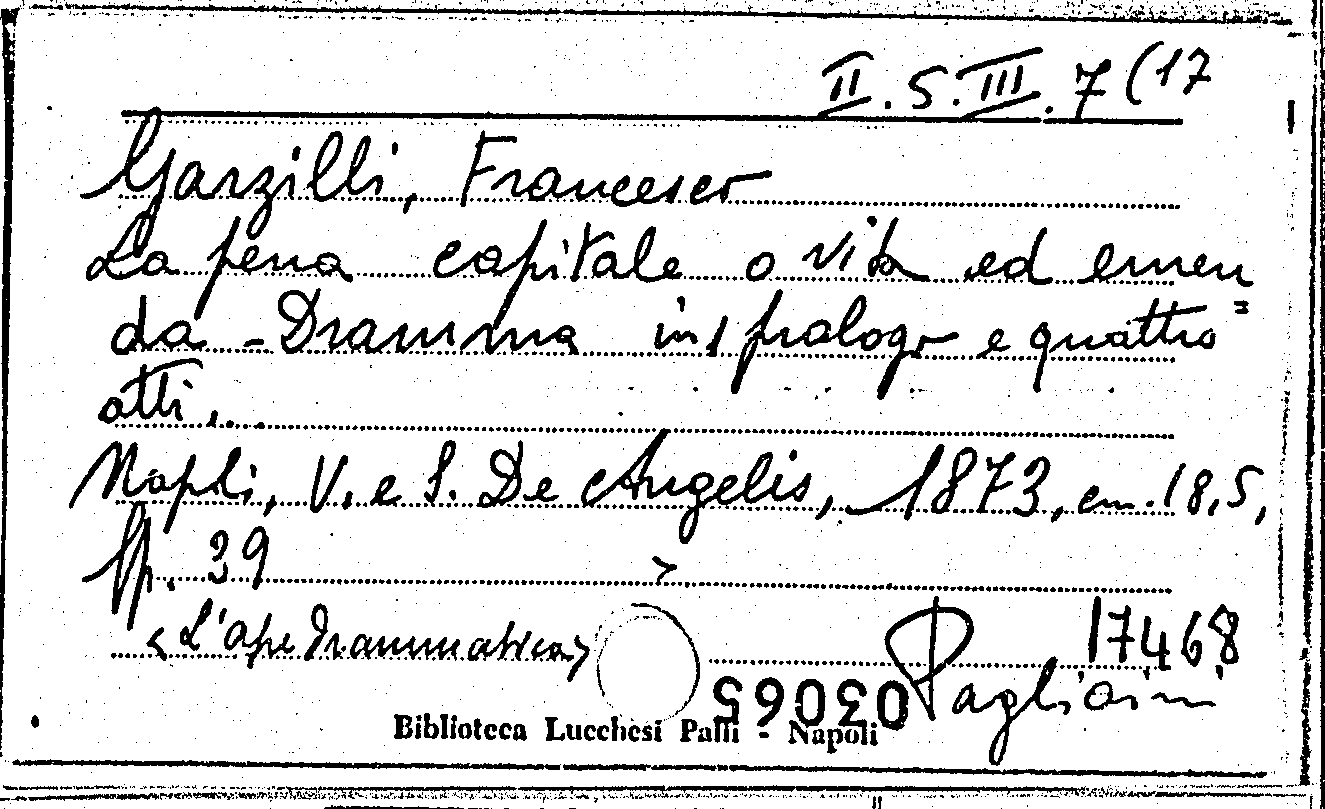 II.5.III.7(17
Garzilli, Francesco
La pena capitale o vita ed emen
da - Dramma in 1 prologo e quattro=
atti...
Napoli, V. e S. De Angelis, 1873, cm. 18,5,
pp. 39
<L'ape drammatica> 17468
03065 Pagliaini
Biblioteca Lucchesi Palli - Napoli